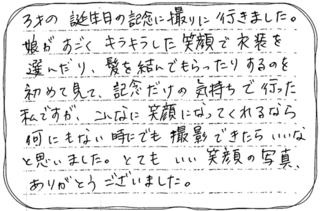 3才の誕生日の記念に撮りに行きました。
娘がすごくキラキラした笑顔で衣装を
選んだり、髪を結んでもらったりするのを
初めて見て、記念だけの気持ちで行った
私ですが、こんなに笑顔になってくれるなら
何にもない時にでも撮影できたらいいな
と思いました。とてもいい笑顔の写真、
ありがとうございました。